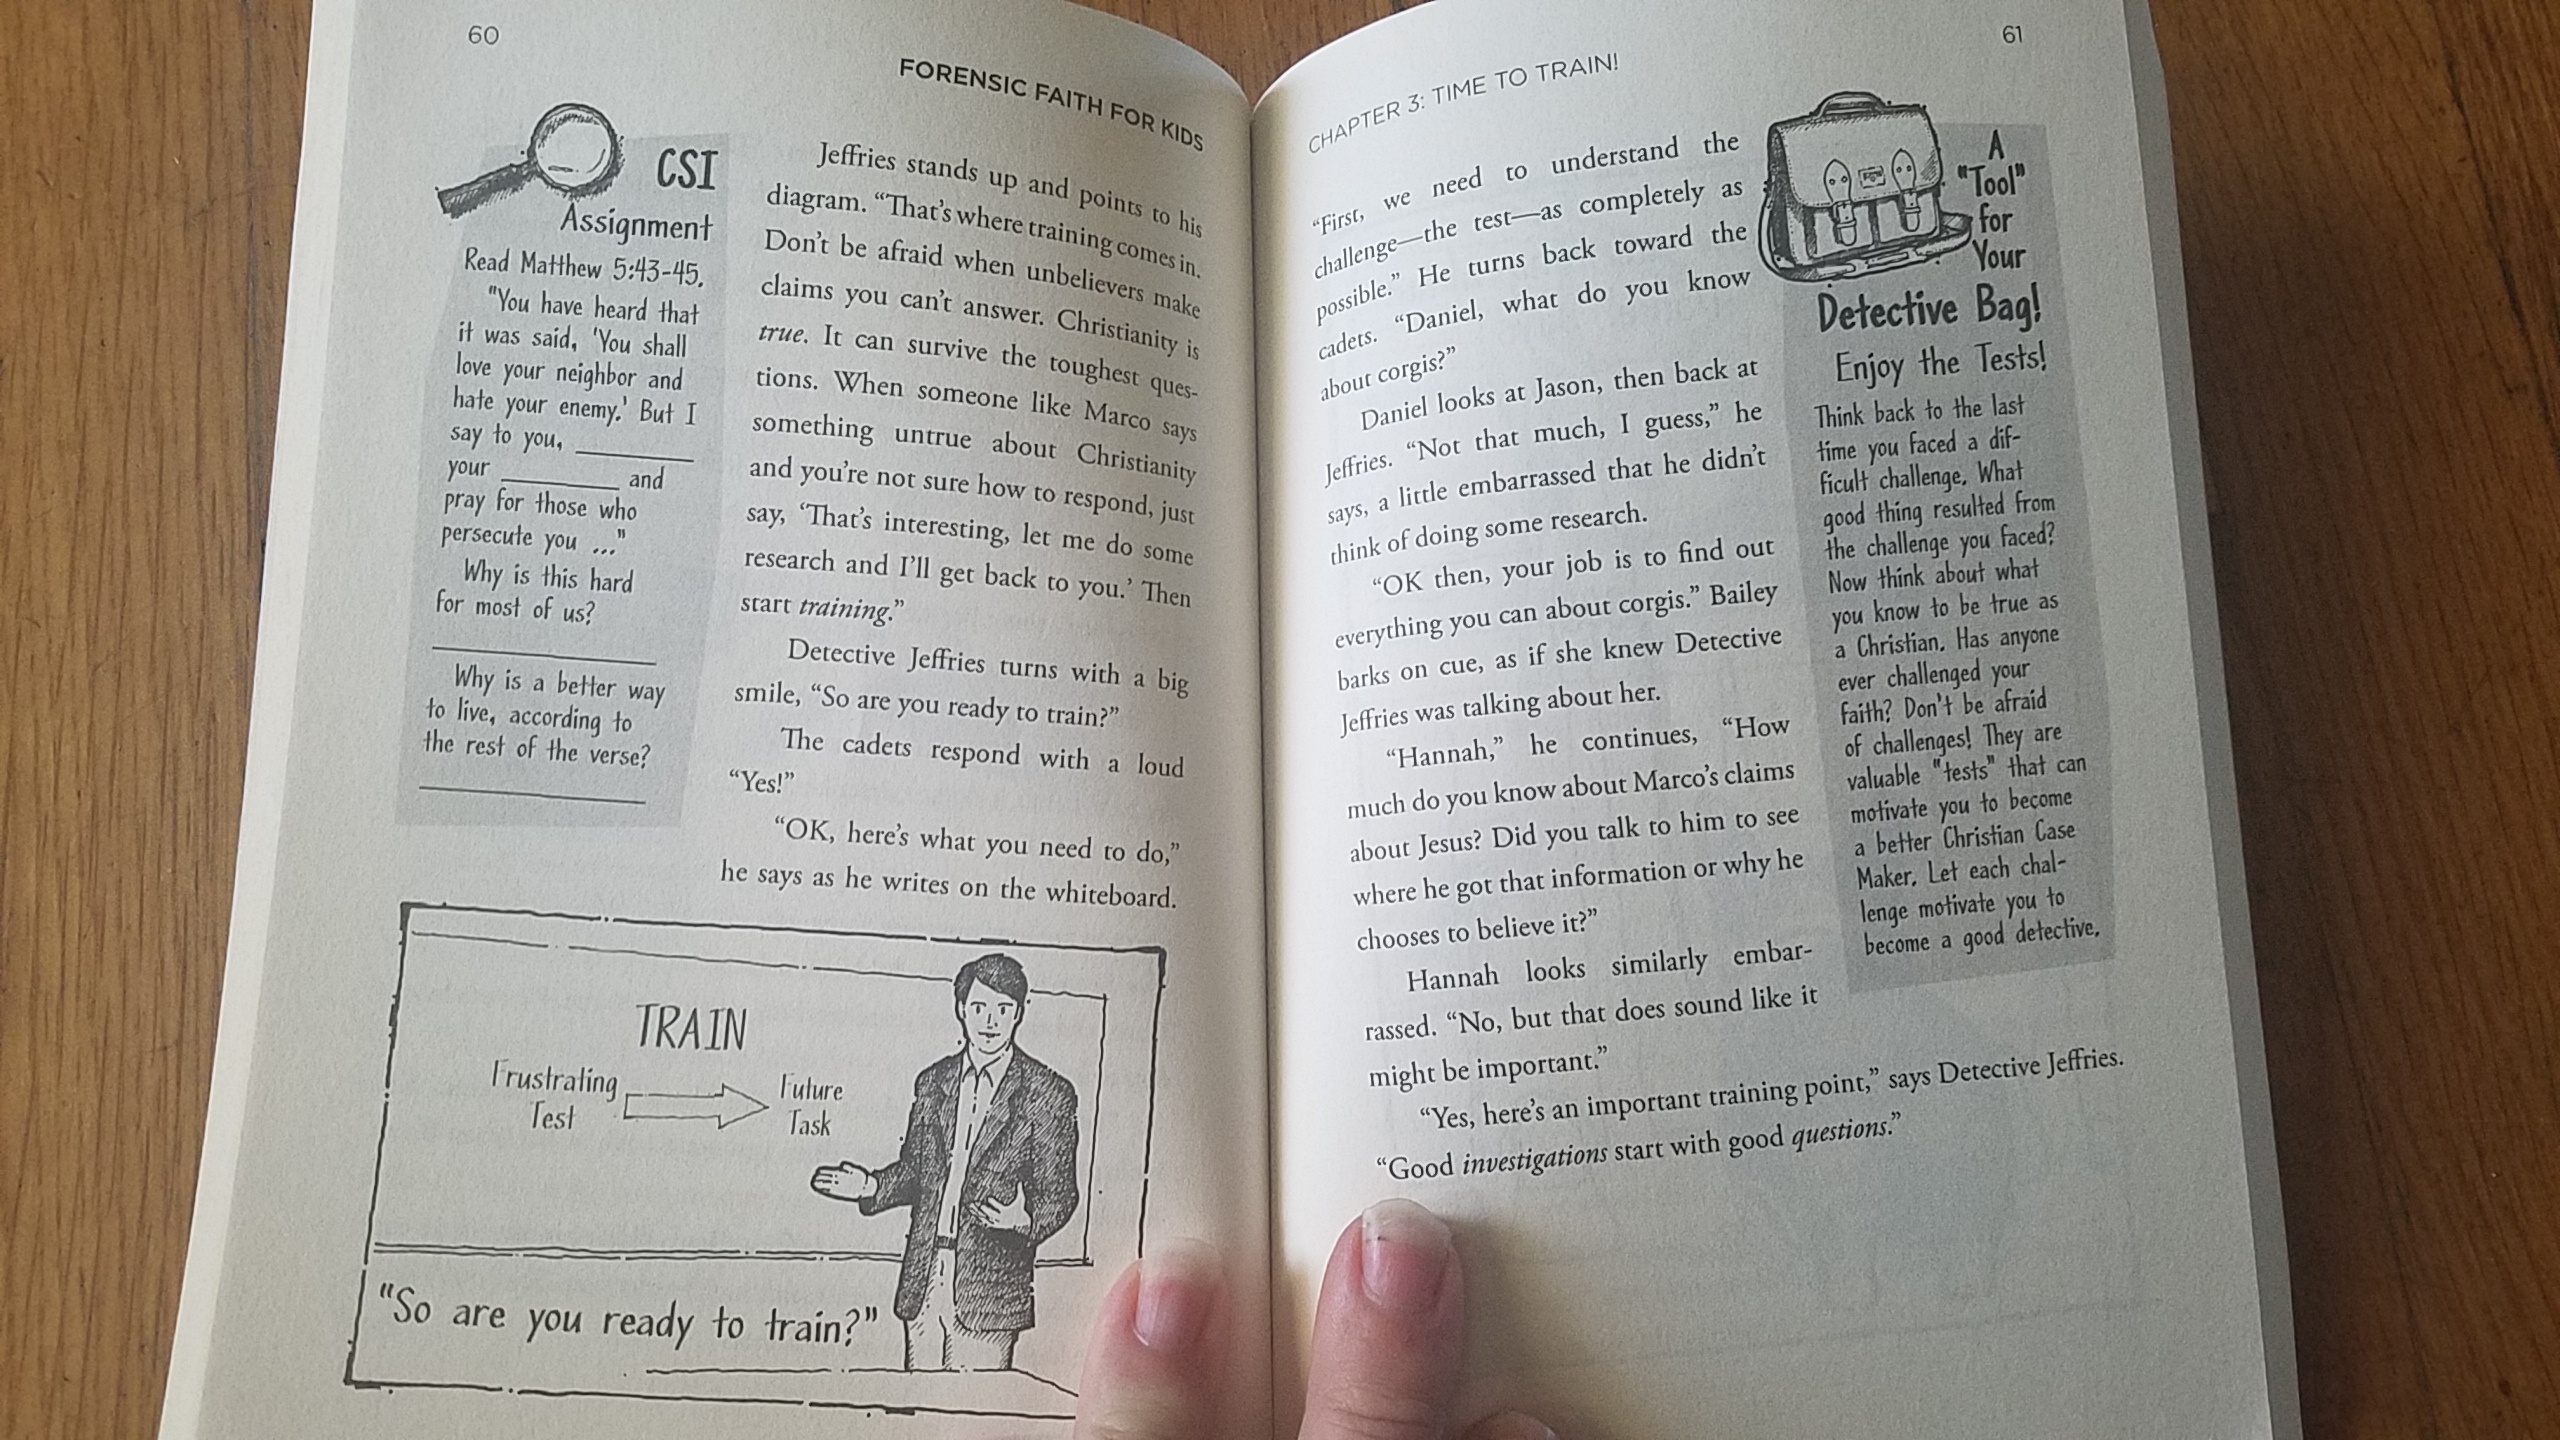 60
FORENSIC FAITH FOR KIDS
CSI
Assignment
Read Matthew 5:43-45.
"You have heard that
it was said, 'You shall
love your neighbor and
hate your enemy.' But I
say to you, ________
your ________ and
pray for those who
persecute you ..."
Why is this hard
for most of us?
Why is a better way
to live, according to
the rest of the verse?
Jeffries stands up and points to his
diagram. “That’s where training comes in.
Don’t be afraid when unbelievers make
claims you can’t answer. Christianity is
true. It can survive the toughest ques-
tions. When someone like Marco says
something untrue about Christianity
and you’re not sure how to respond, just
say, ‘That’s interesting, let me do some
research and I’ll get back to you.’ Then
start training.”
Detective Jeffries turns with a big
smile, “So are you ready to train?”
The cadets respond with a loud
“Yes!”
“OK, here’s what you need to do,”
he says as he writes on the whiteboard.
TRAIN
Frustrating
Test
Future
Task
"So are you ready to train?"
61
CHAPTER 3: TIME TO TRAIN!
“First, we need to understand the
challenge—the test—as completely as
possible.” He turns back toward the
cadets. “Daniel, what do you know
about corgis?”
Daniel looks at Jason, then back at
Jeffries. “Not that much, I guess,” he
says, a little embarrassed that he didn’t
think of doing some research.
“OK then, your job is to find out
everything you can about corgis.” Bailey
barks on cue, as if she knew Detective
Jeffries was talking about her.
“Hannah,” he continues, “How
much do you know about Marco’s claims
about Jesus? Did you talk to him to see
where he got that information or why he
chooses to believe it?”
Hannah looks similarly embar-
rassed. “No, but that does sound like it
might be important.”
“Yes, here’s an important training point,” says Detective Jeffries.
“Good investigations start with good questions.”
A
"Tool"
for
Your
Detective Bag!
Enjoy the Tests!
Think back to the last
time you faced a dif-
ficult challenge. What
good thing resulted from
the challenge you faced?
Now think about what
you know to be true as
a Christian. Has anyone
ever challenged your
faith? Don't be afraid
of challenges! They are
valuable "tests" that can
motivate you to become
a better Christian Case
Maker. Let each chal-
lenge motivate you to
become a good detective.